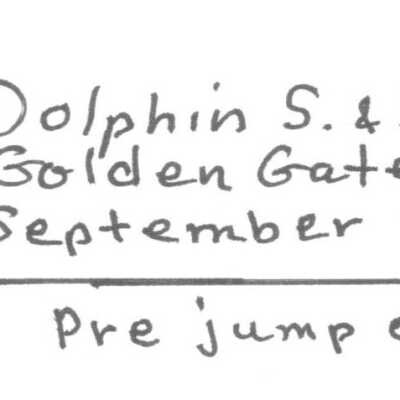 Dolphin S. &
Golden Gate
September
Pre jump